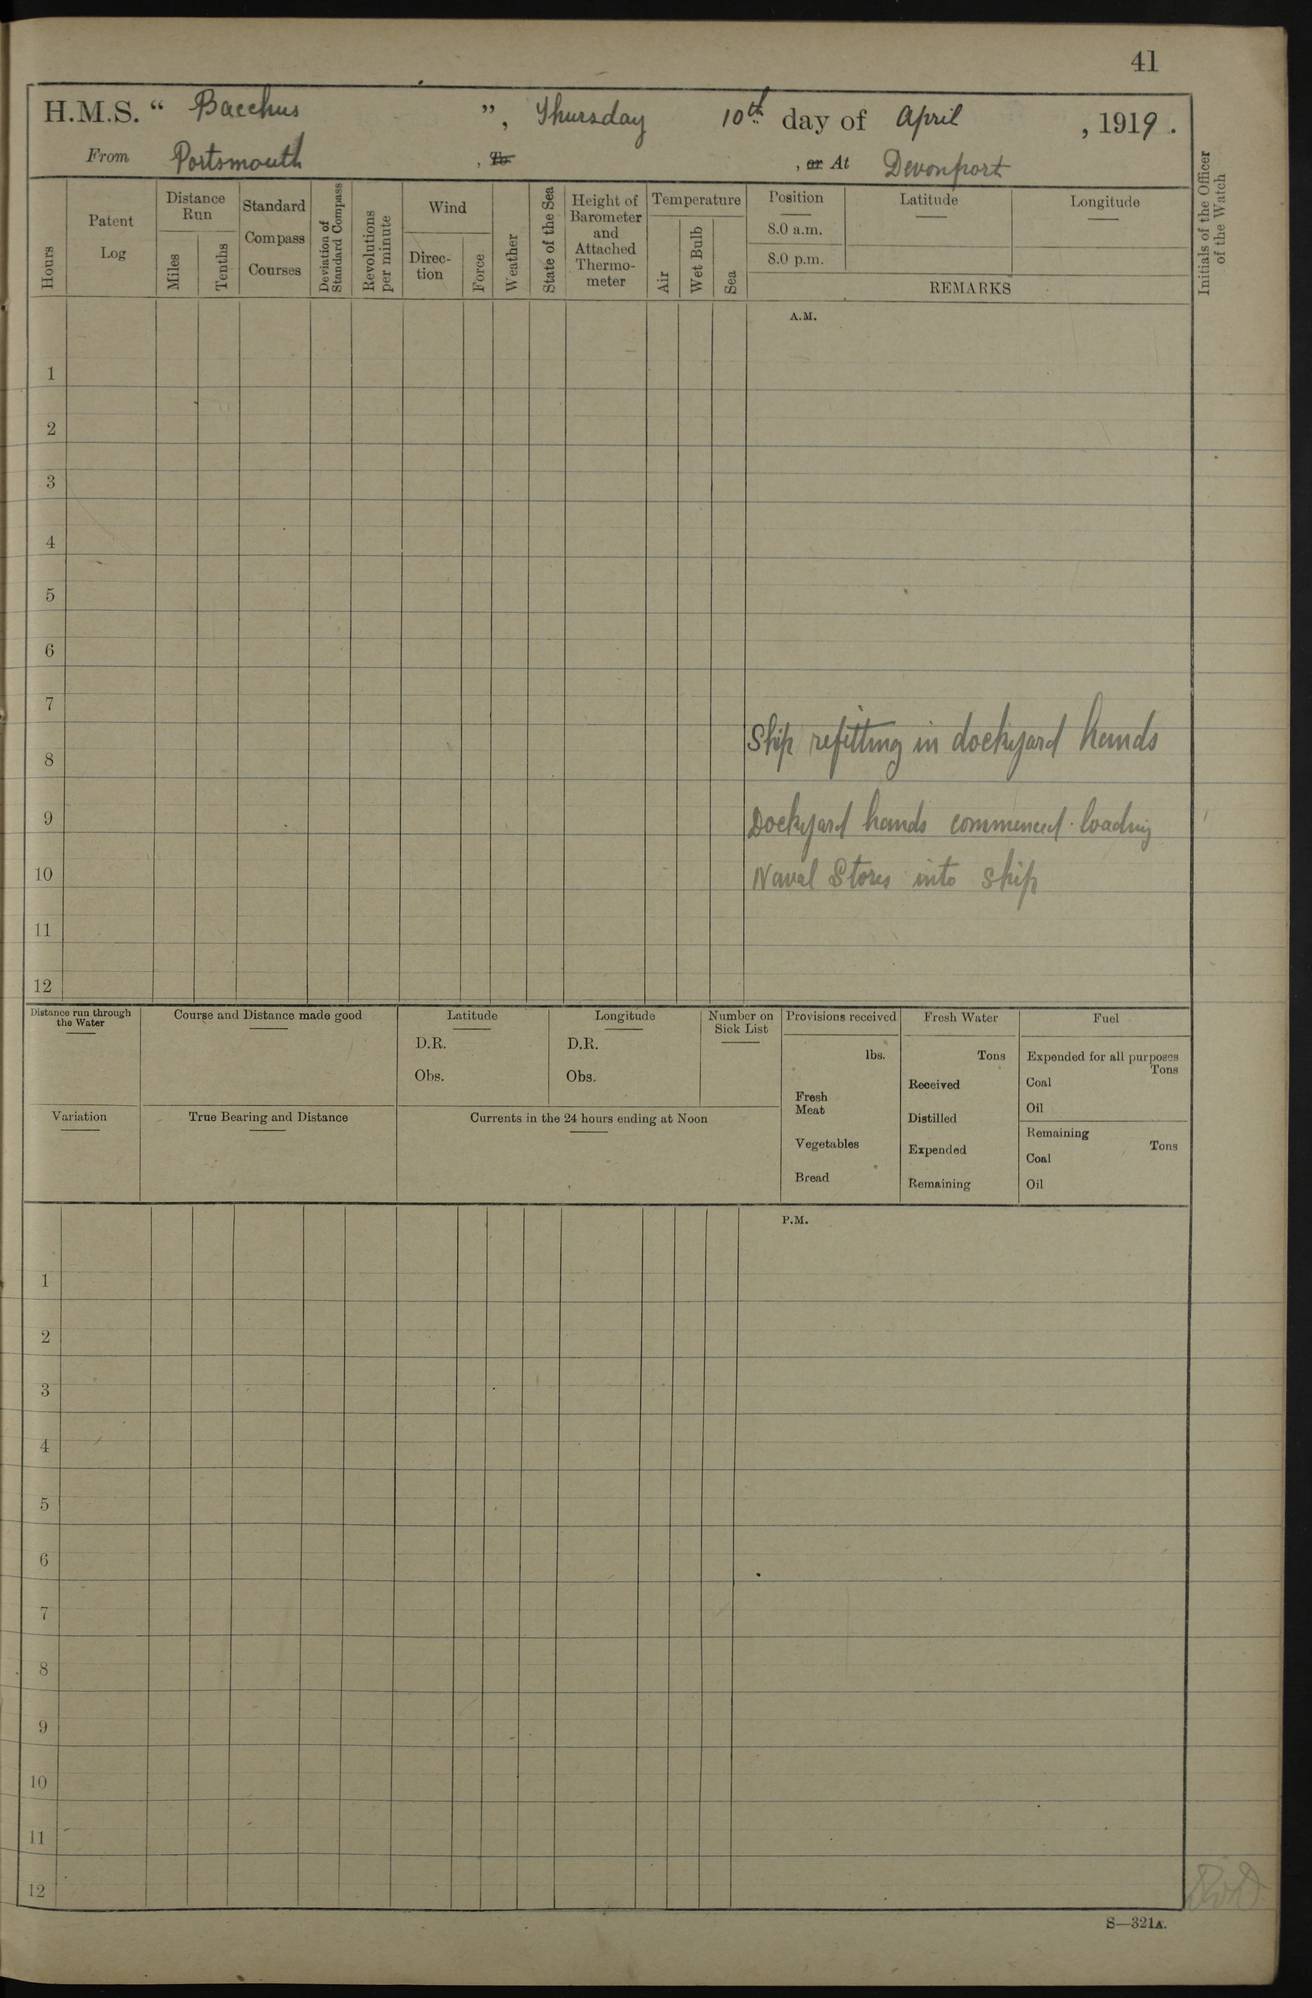 41
H.M.S. “ Bacchus ”, Thursday 10th day of April , 1919 .
From Portsmouth , To , or At Devonport
Hours
Patent Log
Distance Run
Miles
Tenths
Standard Compass Courses
Deviation of Standard Compass
Revolutions per minute
Wind
Direc-tion
Force
Weather
State of the Sea
Height of Barometer and Attached Thermo-meter
Temperature
Air
Wet Bulb
Sea
Position
8.0 a.m.
8.0 p.m.
Latitude
Longitude
REMARKS
Initials of the Officer of the Watch
A.M.
1
2
3
4
5
6
7
8 Ship refitting in dockyard hands
9 Dockyard hands commenced loading
10 Naval Stores into ship
11
12
Distance run through the Water
Course and Distance made good
Latitude
D.R.
Obs.
Longitude
D.R.
Obs.
Number on Sick List
Provisions received
lbs.
Fresh Meat
Vegetables
Bread
Fresh Water
Tons
Received
Distilled
Expended
Remaining
Fuel
Expended for all purposes
Tons
Coal
Oil
Remaining
Tons
Coal
Oil
Variation
True Bearing and Distance
Currents in the 24 hours ending at Noon
P.M.
1
2
3
4
5
6
7
8
9
10
11
12
S—321A.